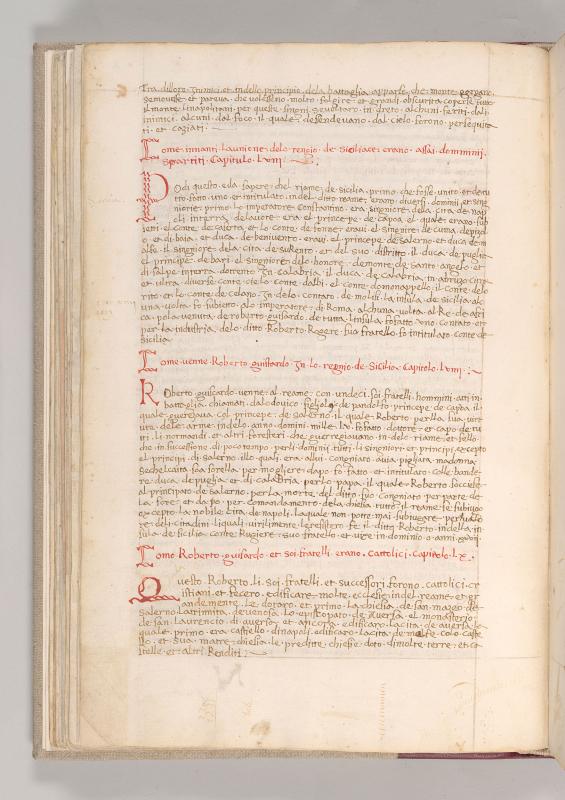 tra di loro Inimici et in dello principio dela battaglia apparse che monte
se mouesse et pareua che uolesseno molto folgire et grandi obscurita coperse
il monte li napolitani per queste singni seuoltaro in dreto alchuni feriti dali
inimici alcuni dal foco il quale desendeuano dal cielo forono perseguita
ti et caziati
Come innanti launione delo regnio de siciliace erano assai domminij
spartiti Capitulo Lviij
Podi questo eda sapere chel riame de sicilia primo che fosse unito et
tto fatto uno et intitulato indel ditto reame erano diuersi domnij et sing
niorie primo lo imperatore constantino era singniore dela cita de nap
oli interra delauore era el prencepe de capoa el quale erano sub
ieti el conte de caserta et lo conte de fonne eraui el singnire de cuma
et di baia et duca de beniuento eraui el principe de salerno et duca de m
alfe il singhiore dela cita de surento et del suo distritto il duca de puglia
el principe de bari el singniore delo honore demonte de santo angelo et
di salpe interra dotrento In calabria il duca de calabria in abruzo cinque
et ultra diuerse conte cio lo conte dalbi el conte domanoppello il conte delo
rito et lo conte de celano In delo contato de molisi la insula de sicilia alc
una uolta fo subietto alo imperatore di Roma alchuna uolta al Re de afri
ca pola uenuta de roberto guisardo de tutta linsula fo fatto uno contato et
per la industria delo ditto Roberto Rogere suo fratello fo intitulato conte de
sicilia
Come uenne Roberto guistardo In lo regnio de Sicilia Capitolo Lviiij
Roberto guiscardo uenne al reame con undeci soi fratelli hommini atti in
battaglia chiamati da lodouico figliolo de pandolfo principe de capua il
quale guerejaua col principe de salerno il quale Roberto perlla sua uir
tute dele arme indelo anno domini mille lxx fo fatto dottore et capo de tu
tti li normandi et altri foresteri che guerregiauano in delo riame et fello
che in successione di poco tempo perli dominij tutti li singniori et principi excepto
el principi di salerno illo quali era allui congniato auia pigliata madonna
sechelcaita soa sorella per mogliere dapo fo fatto et intitulato colle bande
re duca de puglia et di calabria per lo papa il quale Roberto soccesse
al principato de salerno per la morte del ditto suo congniato per parte de
la sore et dapo per commandamento dela chesia tutto il reame se subiugo
excepto la nobile cita de napoli laquale non potte mai subiugare
re deli citadini liquali uirilimente le resistero fe il ditto Roberto indella in
sula de sicilia conte Rugiere suo fratello et uixe in dominio
Como Roberto guisardo et soi fratelli erano Cattolici Capitolo Lx
Questo Roberto li soi fratelli et successori forono cattolici cr
istiani et fecero edificare molte ecclesie indel reame et gr
andemente le dotaro et primo la chiesia de san mateo de
salerno la trinita de uenosa lo episcopato de Auersa el monasterio
de san laurencio di auersa et ancora edificaro la cita de auersa la
quale primo era castello di napoli edificaro la cita de melfe colo caste
llo et sua matre chiesia le preditte chiese doto dimolte terre et ca
stelle et altri Renditi